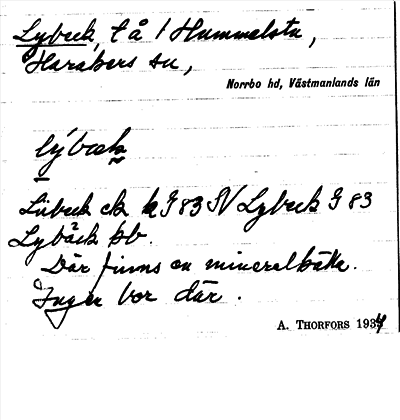 Lybeck, t å 1 Hummelsta,
Harakers sn,
Norrbo hd, Västmanlands län
lýbeck
Lübeck ek k G 83 SV Lybeck G 83
Lybäck jb.
Där finns en mineralkälla.
Ingen bor där.
A. THORFORS 1934